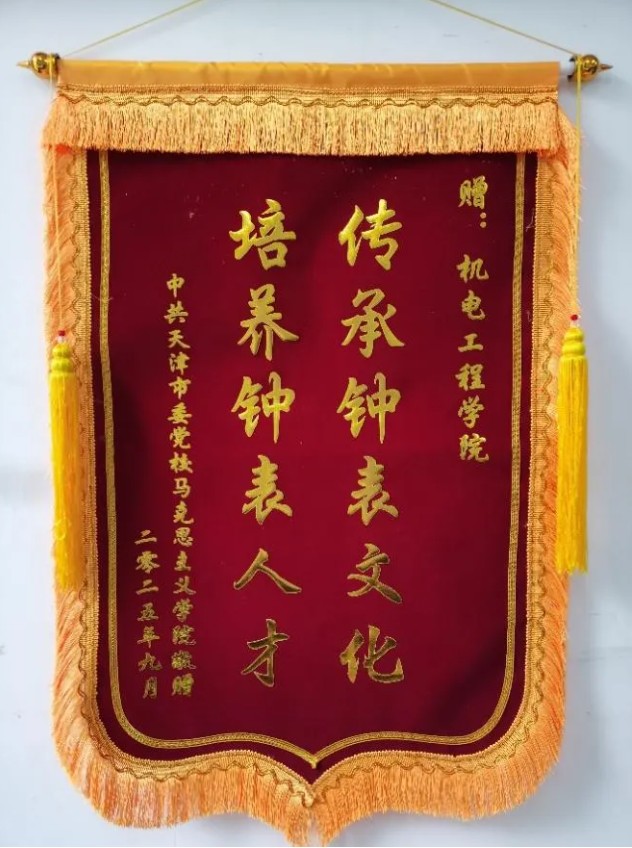 赠：机电工程学院
传承钟表文化
培养钟表人才
中共天津市委党校马克思主义学院敬赠
二零二五年九月